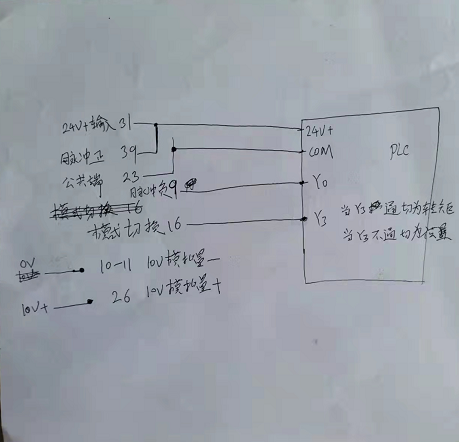 24V+输入 31 24V+
脉冲正 39 COM PLC
公共端 23
脉冲负9 Y0
模式切换 16
模式切换 16 Y3 当Y3通切为转矩
当Y3不通切为位置
0V 10-11 10V模拟量-
10V+ 26 10V模拟量+